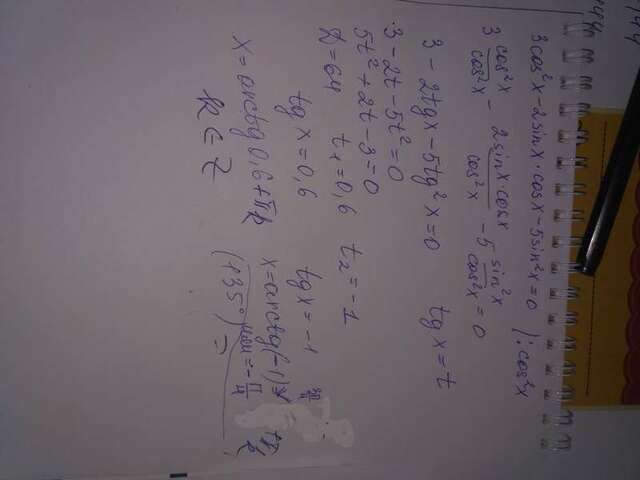 3cos²x-2sinx·cosx-5sin²x=0 |:cos²x
3 cos²x/cos²x - 2sinx cosx/cos²x - 5 sin²x/cos²x = 0
3 - 2tgx - 5tg²x=0 tgx=t
3-2t-5t²=0
5t²+2t-3=0
D=64 t₁=0,6 t₂=-1
tgx=0,6 tgx=-1
x=arctg0,6+πk x=arctg(-1)+ πk
k∈Z (135°) или =-π/4